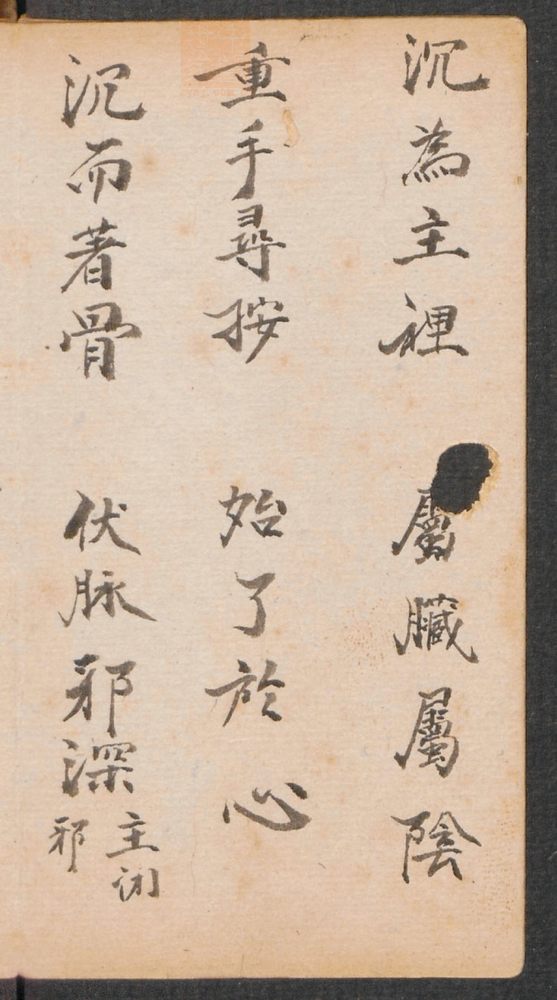 沉為主裡 屬臟屬陰
重手尋按 始了於心
沉而著骨 伏脉邪深主闭邪